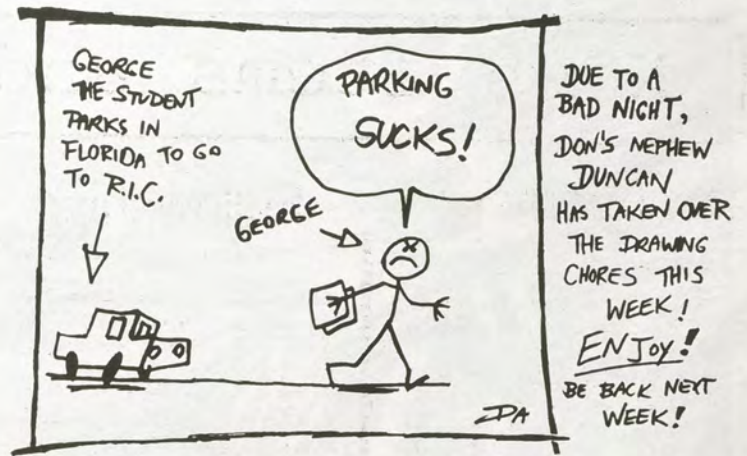 GEORGE
THE STUDENT
PARKS IN
FLORIDA TO GO
TO R.I.C.
PARKING
SUCKS!
GEORGE
DA
DUE TO A
BAD NIGHT,
DON'S NEPHEW
DUNCAN
HAS TAKEN OVER
THE DRAWING
CHORES THIS
WEEK!
ENJOY!
BE BACK NEXT
WEEK!